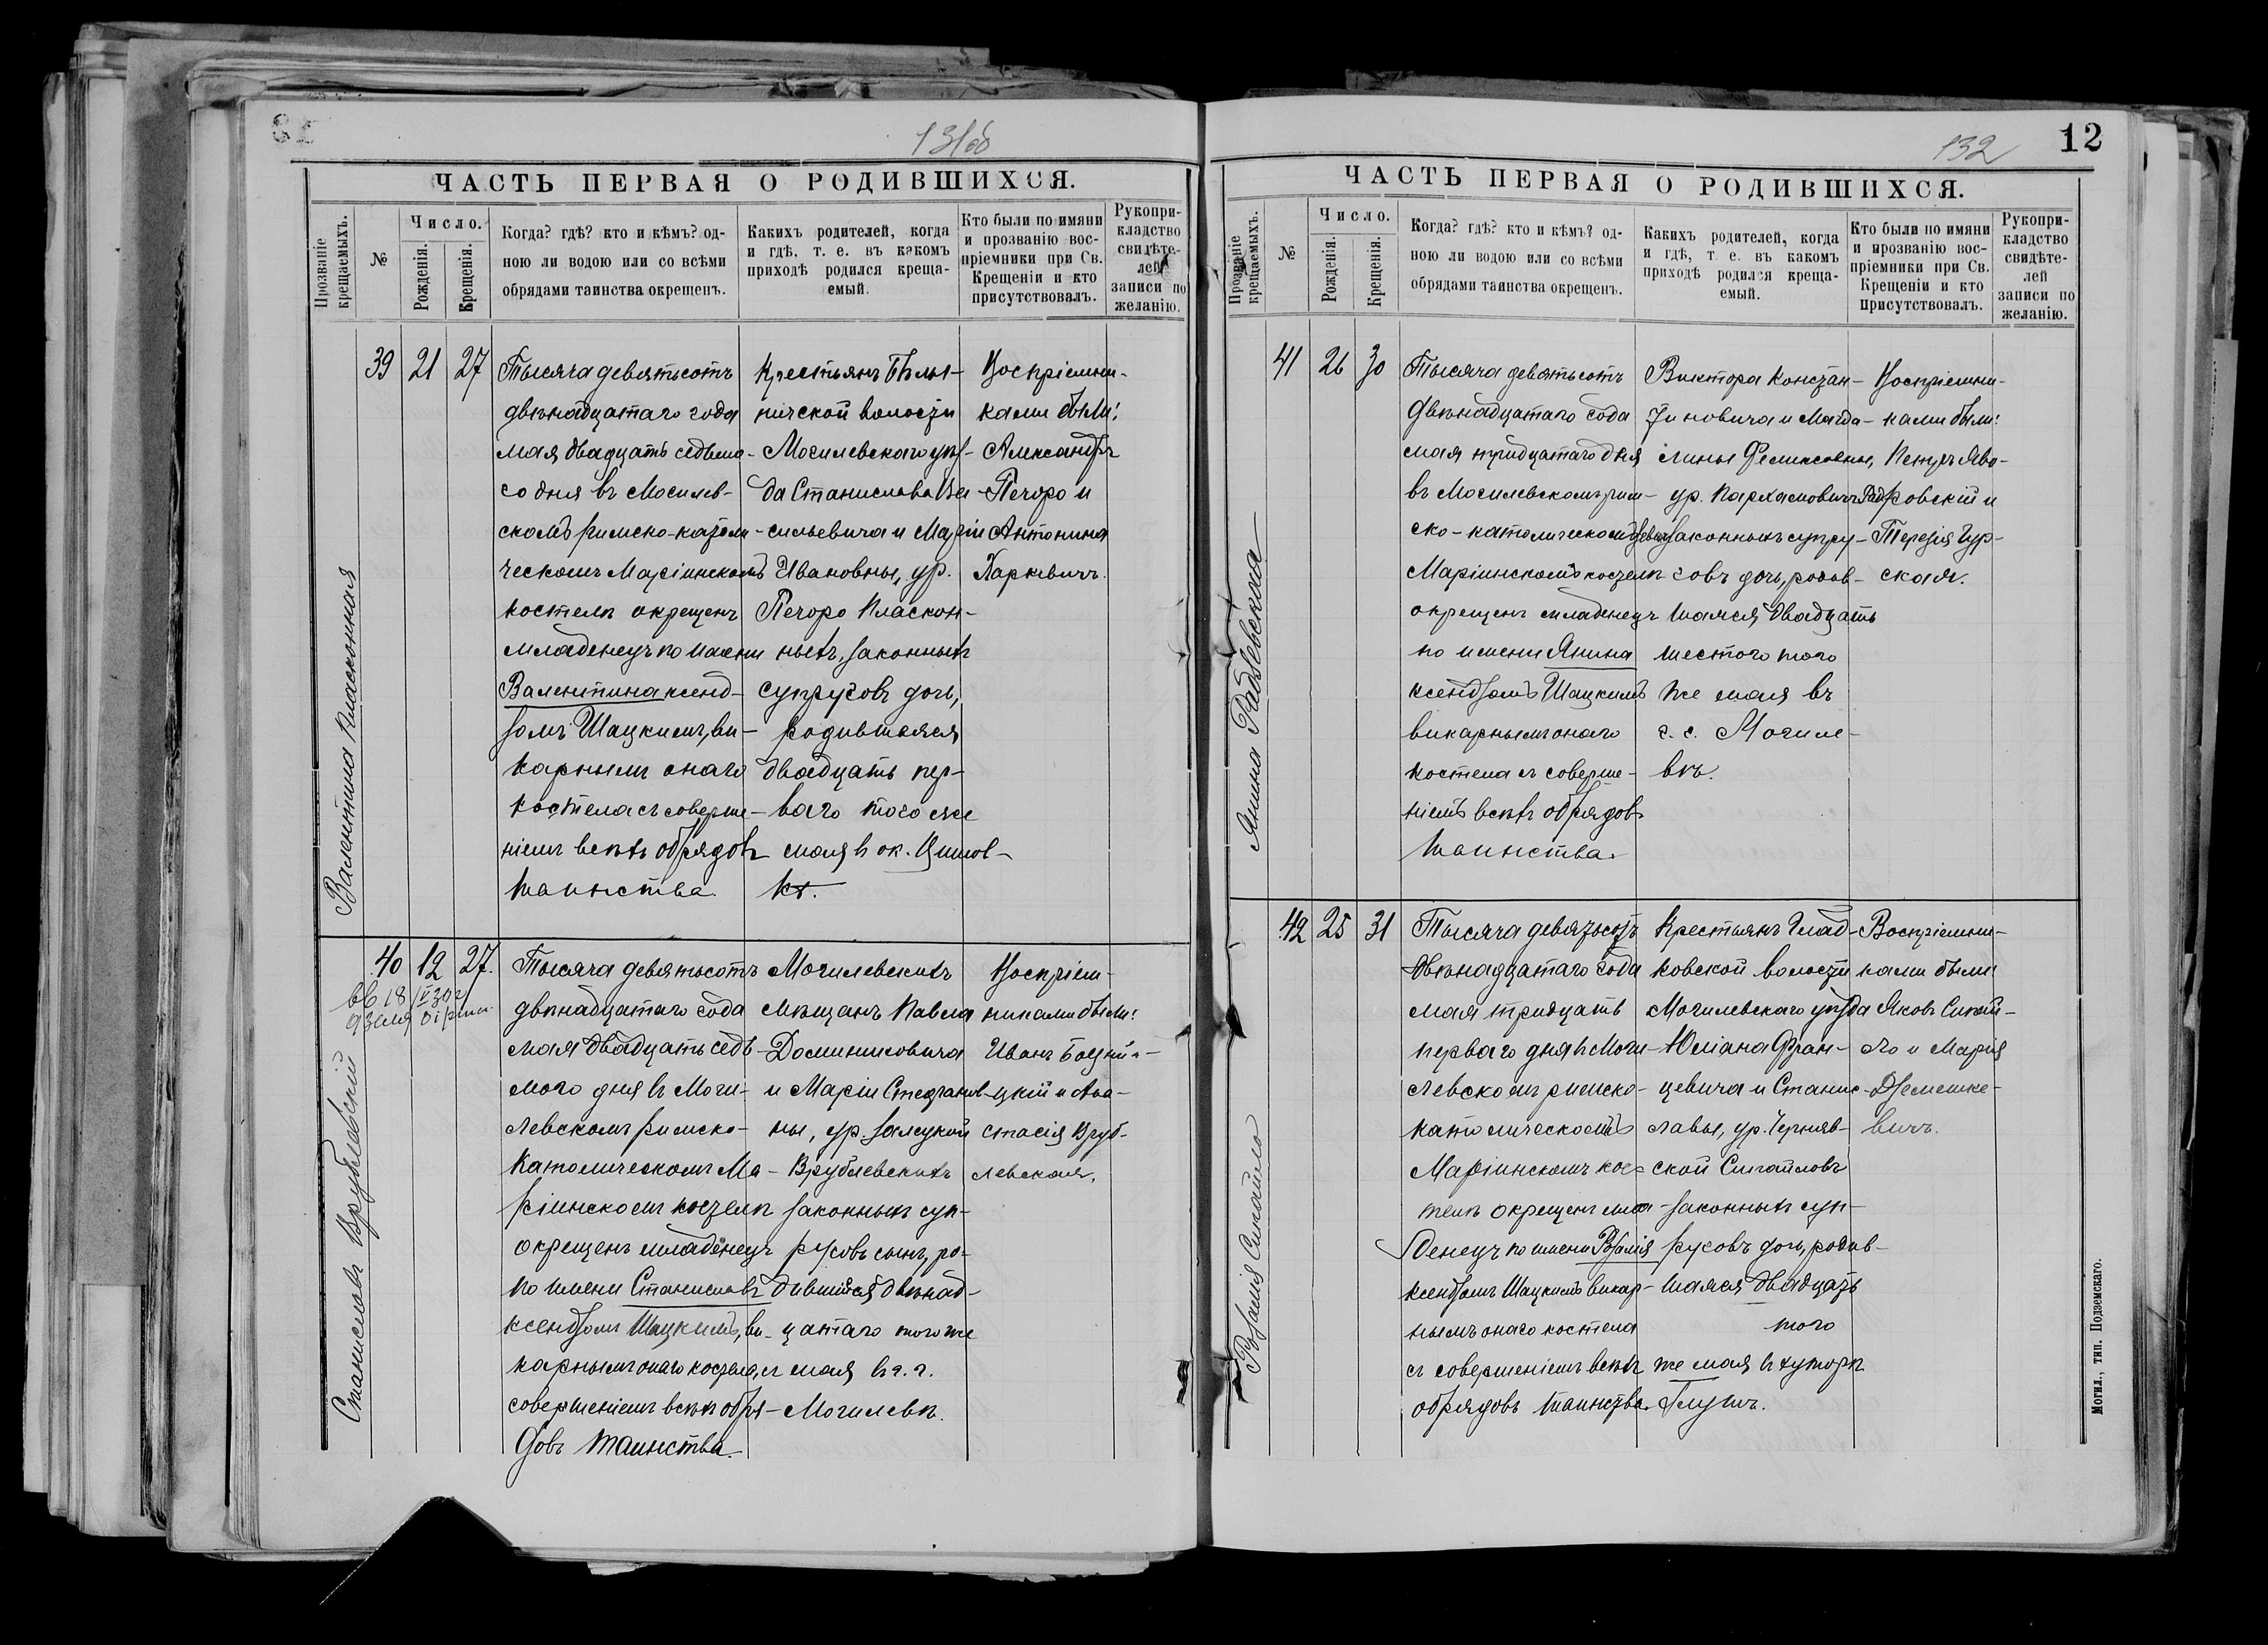 131об
ЧАСТЬ ПЕРВАЯ О РОДИВШИХСЯ.
Прозваніе крещаемыхъ.
№
Число.
Рожденія.
Крещенія.
Когда? гдѣ? кто и кѣмъ? од-
ною ли водою или со всѣми
обрядами таинства окрещенъ.
Какихъ родителей, когда
и гдѣ, т. е. въ какомъ
приходѣ родился креща-
емый.
Кто были по имяни
и прозванію вос-
пріемники при Св.
Крещеніи и кто
присутствовалъ.
Рукопри-
кладство
свидѣте-
лей
записи по
желанію.
Валентина Пласконная
39
21
27
Тысяча девятьсотъ
двѣнадцатаго года
мая двадцать седьма-
го дня въ Могилев-
скомъ римско-катóли-
ческомъ Маріинскомъ
костелѣ окрещенъ
младенецъ по имени
Валентина ксенд-
зомъ Шацкимъ, ви-
карнымъ онаго
костела съ соверше-
ніемъ всѣхъ обрядовъ
таинства.
Крестьянъ Бѣлы-
ничской волости
Могилевскаго уѣз-
да Станислава Ва-
сильевича и Маріи
Ивановны, ур.
Печоро Пласкон-
ныхъ, законныхъ
супруговъ дочь,
родившаяся
двадцать пер-
ваго того же
мая въ ок.
Воспріемни-
ками были:
Александръ
Печоро и
Антонина
Харкевичъ.
Станиславъ Врублевскій
40
12
27.
Тысяча девятьсотъ
двѣнадцатаго года
мая двадцать седь-
мого дня въ Моги-
левскомъ римско-
католическомъ Ма-
ріинскомъ костелѣ
окрещенъ младенецъ
по имени Станиславъ
ксендзомъ Шацкимъ, ви-
карнымъ онаго костела, съ
совершеніемъ всѣхъ обря-
довъ таинства.
Могилевскихъ
мѣщанъ Павла
Доминиковича
и Маріи Стефанов-
ны, ур. Залуцкой
Врублевскихъ
законныхъ суп-
руговъ сынъ, ро-
дившійся двѣнад-
цатаго того же
мая въ г. г.
Могилевѣ.
Воспріем-
никами были:
Иванъ
и Ана-
стасія Вруб-
левская.
132
12
ЧАСТЬ ПЕРВАЯ О РОДИВШИХСЯ.
Прозваніе крещаемыхъ.
№
Число.
Рожденія.
Крещенія.
Когда? гдѣ? кто и кѣмъ? од-
ною ли водою или со всѣми
обрядами таинства окрещенъ.
Какихъ родителей, когда
и гдѣ, т. е. въ какомъ
приходѣ родился креща-
емый.
Кто были по имяни
и прозванію вос-
пріемники при Св.
Крещеніи и кто
присутствовалъ.
Рукопри-
кладство
свидѣте-
лей
записи по
желанію.
Янина Радзевская
41
26
30
Тысяча девятьсотъ
двѣнадцатаго года
мая тридцатаго дня
въ Могилевскомъ рим-
ско-католическомъ
Маріинскомъ костелѣ
окрещенъ младенецъ
по имени Янина
ксендзомъ Шацкимъ
викарнымъ онаго
костела съ соверше-
ніемъ всѣхъ обрядовъ
таинства.
Виктора Констан-
тиновича и Магда-
лины Феликсовны,
ур. Пархамовичъ
законныхъ супру-
говъ дочь, родив-
шаяся двадцать
шестого того
же мая въ
г. г. Могиле-
вѣ.
Воспріемни-
ками были:
Петръ Яво-
ровскій и
Терезія Гур-
ская.
Розалія Сикайло
42
25
31
Тысяча девятьсотъ
двѣнадцатаго года
мая тридцать
перваго дня въ Моги-
левскомъ римско-
католическомъ
Маріинскомъ кос-
телѣ окрещенъ мла-
денецъ по имени Розалія
ксендзомъ Шацкимъ викар-
нымъ онаго костела
съ совершеніемъ всѣхъ
обрядовъ таинства.
Крестьянъ Глад-
ковской волости
Могилевскаго уѣзда
Юліана Фран-
цевича и Станис-
лавы, ур. Черняв-
ской Сикайловъ
законныхъ суп-
руговъ дочь, родив-
шаяся двадцать
того
же мая въ хуторѣ
Воспріемни-
ками были:
Яковъ Сикай-
ло и Марія
Дземешке-
вичъ.
Могил., тип. Подземскаго.